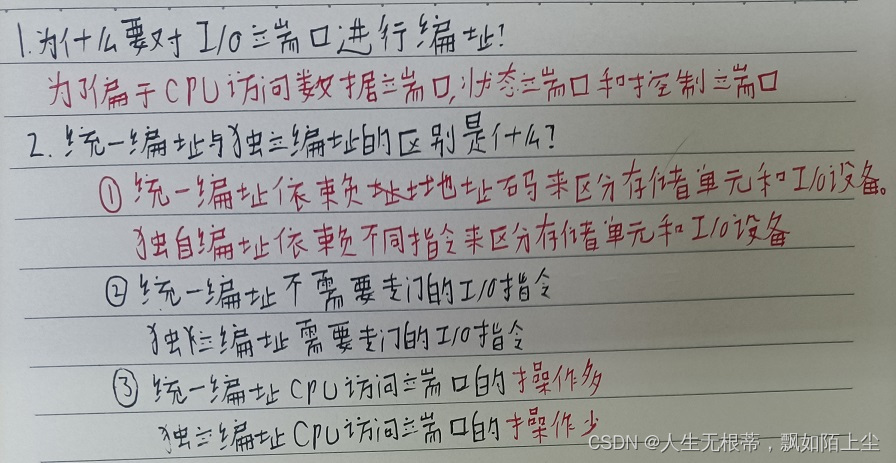 1.为什么要对I/O端口进行编址?
为了偏于CPU访问数据端口,状态端口和控制端口
2.统一编址与独立编址的区别是什么?
①统一编址依赖地址码来区分存储单元和I/O设备。
独自编址依赖不同指令来区分存储单元和I/O设备
②统一编址不需要专门的I/O指令
独立编址需要专门的I/O指令
③统一编址CPU访问端口的操作多
独立编址CPU访问端口的操作少
CSDN @人生无根蒂，飘如陌上尘